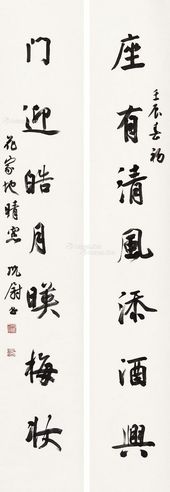 壬辰春初
座有清風添酒興
門迎皓月暎梅妝
花家地晴窓